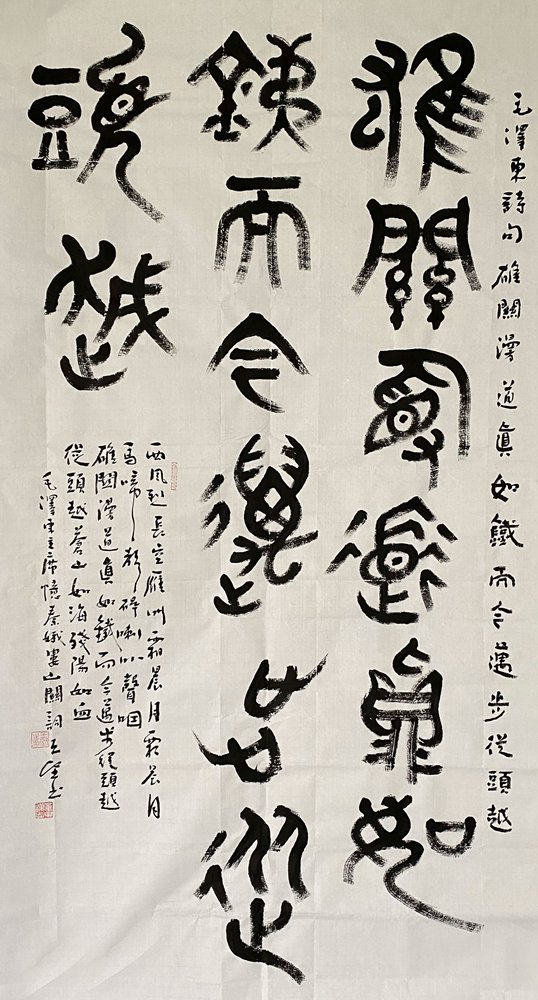 毛澤東詩句雄關漫道真如鐵而今邁步從頭越
雄關漫道真如
鐵而今邁步從
頭越
西風烈長空雁叫霜晨月霜晨月
馬啼聲碎喇叭聲咽
雄關漫道真如鐵而今邁步從頭越
從頭越蒼山如海殘陽如血
毛澤東主席憶秦娥婁山關詞